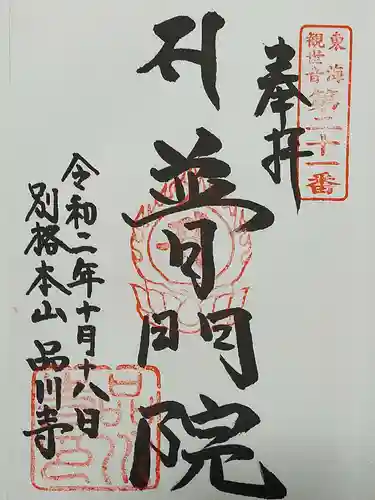 東海
観世音
第二十一番
奉拝
普門院
令和二年十月十八日
別格本山 品川寺